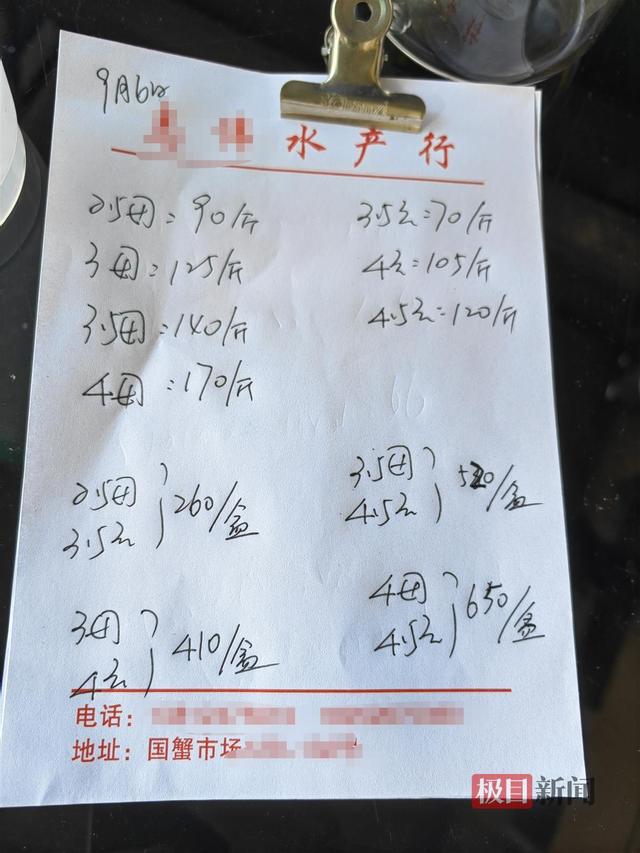 9月6日
水产行
2.5母=90/斤
3母=125/斤
3.5母=140/斤
4母=170/斤
3.5公=70/斤
4公=105/斤
4.5公=120/斤
2.5母
3.5公 } 260/盒
3.5母
4.5公 } 520/盒
3母
4公 } 410/盒
4母
4.5公 } 650/盒
电话:
地址: 国蟹市场
极目新闻